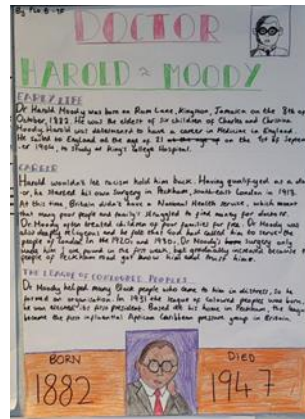 DOCTOR
HAROLD MOODY
EARLY LIFE
Dr Harold Moody was born on Rum Lane, Kingston, Jamaica on the 8th of
October, 1882. He was the eldest of six children of Charles and Christina
Moody. Harold was determined to have a career in Medicine in England.
He sailed to England at the age of 21 on the 1st of Septem-
ber 1904, to study at King's College Hospital.
CAREER
Harold wouldn't let racism hold him back. Having qualified as a doct-
or, he started his own surgery in Peckham, South-east London in 1913.
At this time, Britain didn't have a National Health Service, which meant
that many poor people and family's struggled to find money for doctors.
Dr Moody often treated children of poor families for free. Dr Moody was
also deeply religious and he felt that God had called him to serve the
people of London in the 1920s and 1930s. Dr Moody's surgery only
made him 1 pound in his first week but became successful because the
people of Peckham road got know him and trust him.
THE LEAGUE OF COLOURED PEOPLES
Dr Moody helped many Black people who came to him in distress, so he
formed an organisation. In 1931 the league of coloured peoples was born,
he was elected its first president. Based at his home in Peckham, the league
became the first influential African Caribbean pressure group in Britain.
BORN
1882
DIED
1947